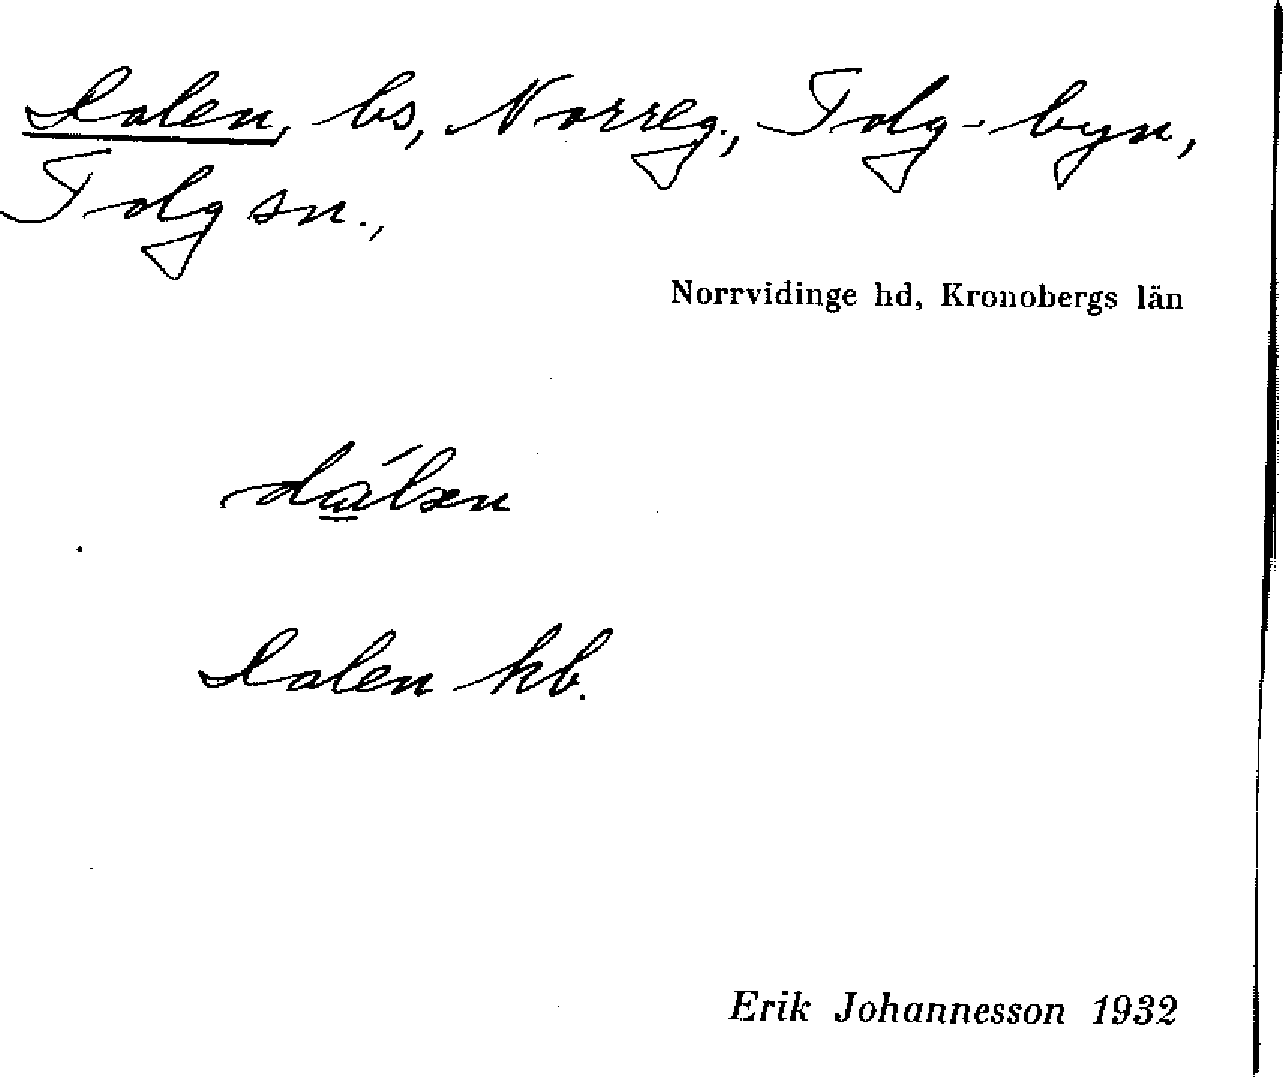 Dalen, bs, Norreg., Tolg-byn,
Tolg sn.,
Norrvidinge hd, Kronobergs län
da̲´lən
Dalen kb.
Erik Johannesson 1932